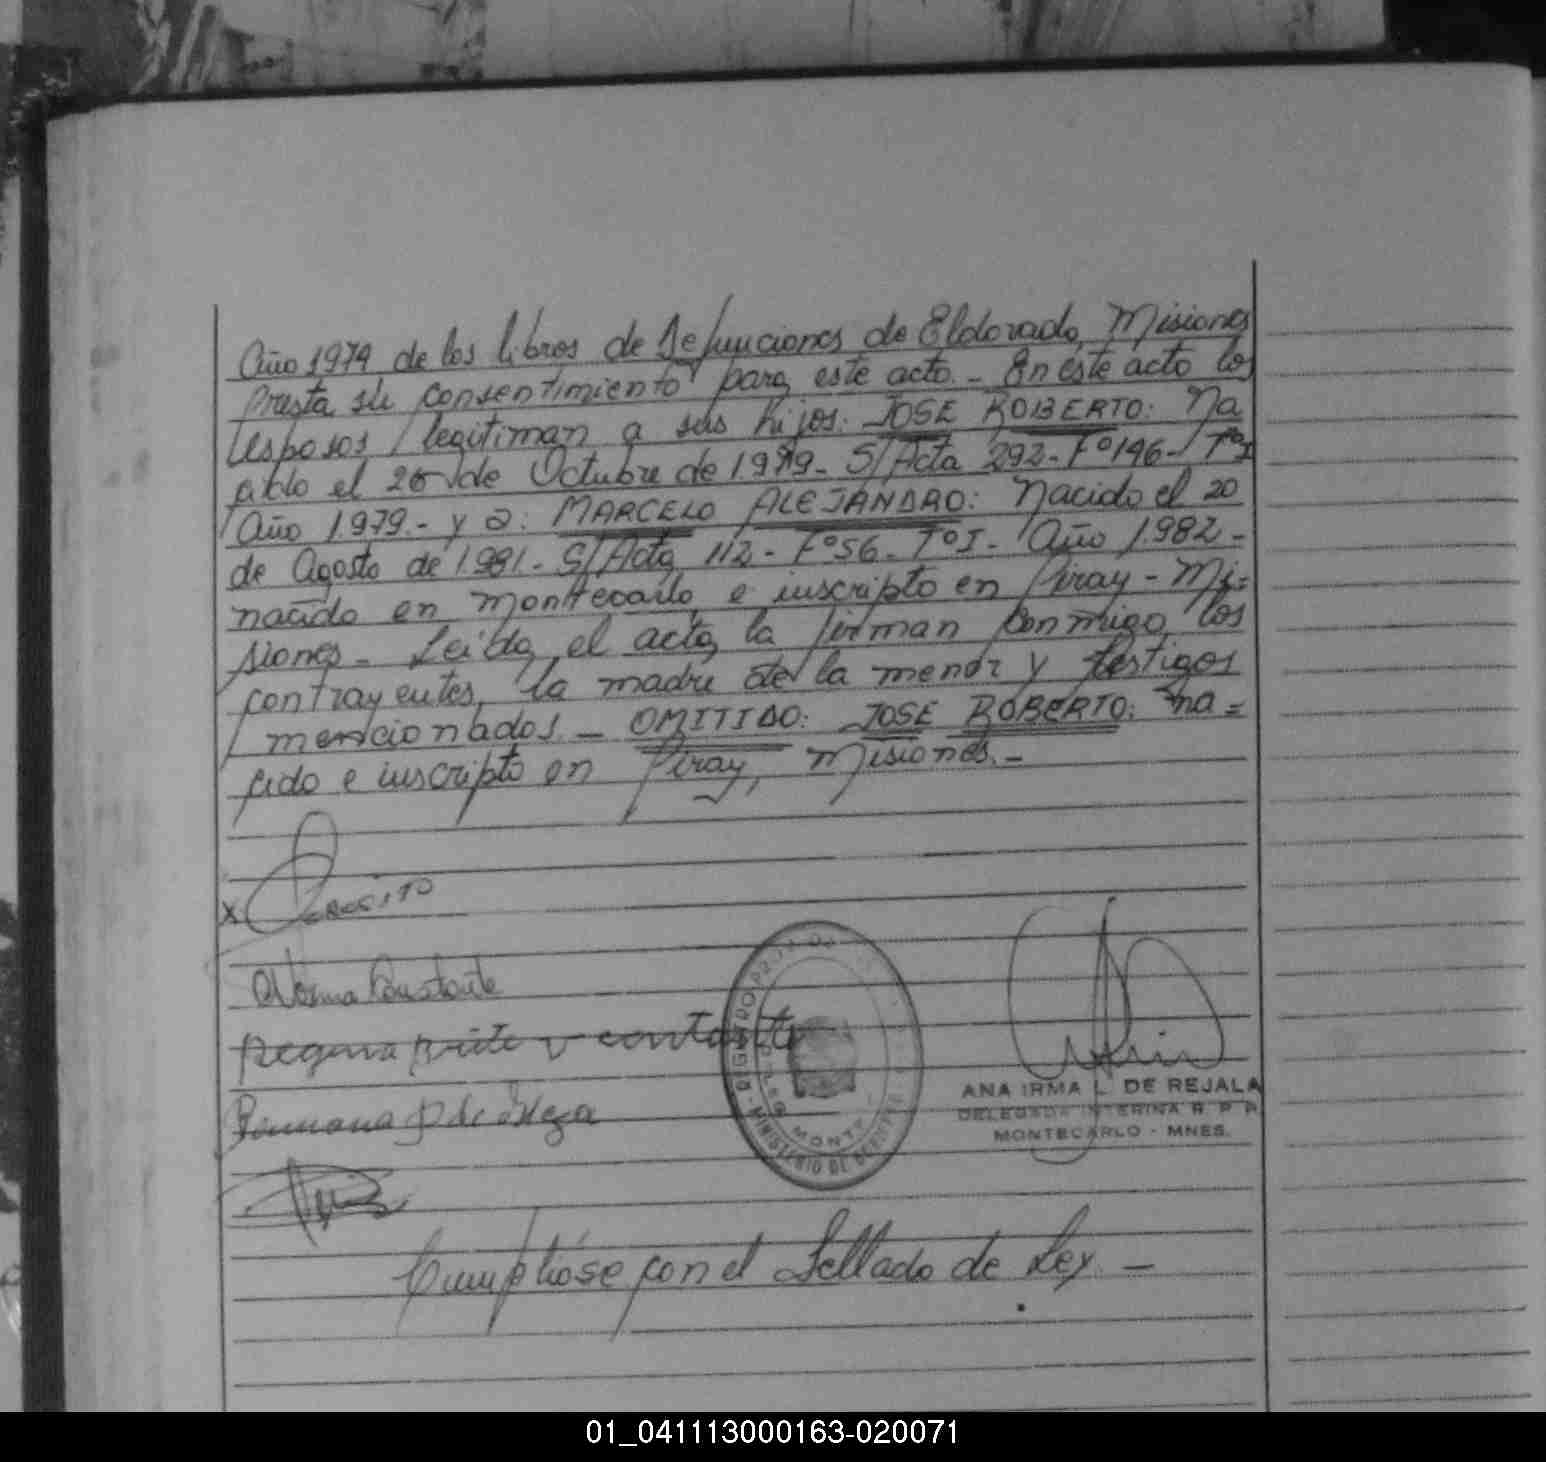 Año 1974 de los libros de Defunciones de Eldorado, Misiones
Presta su consentimiento para este acto.- En este acto los
esposos legitiman a sus hijos: JOSE ROBERTO: Na
cido el 26 de Octubre de 1979- S/Acta 292- Fº146- TºI
Año 1.979.- y a: MARCELO ALEJANDRO: Nacido el 20
de Agosto de 1981.- S/Acta 112- Fº56- TºI- Año 1982-
nacido en Montecarlo, e inscripto en Piray - Mi=
siones- Leída el acta, la firman conmigo, los
contrayentes, la madre de la menor y testigos
mencionados.- OMITIDO: JOSE ROBERTO: na=
cido e inscripto en Piray, Misiones.-
X
Norma
ANA IRMA L. DE REJALA
DELEGADA INTERINA R. P. P.
MONTECARLO - MNES.
MINISTERIO DE
Cumplióse con el Sellado de Ley. -
01_041113000163-020071